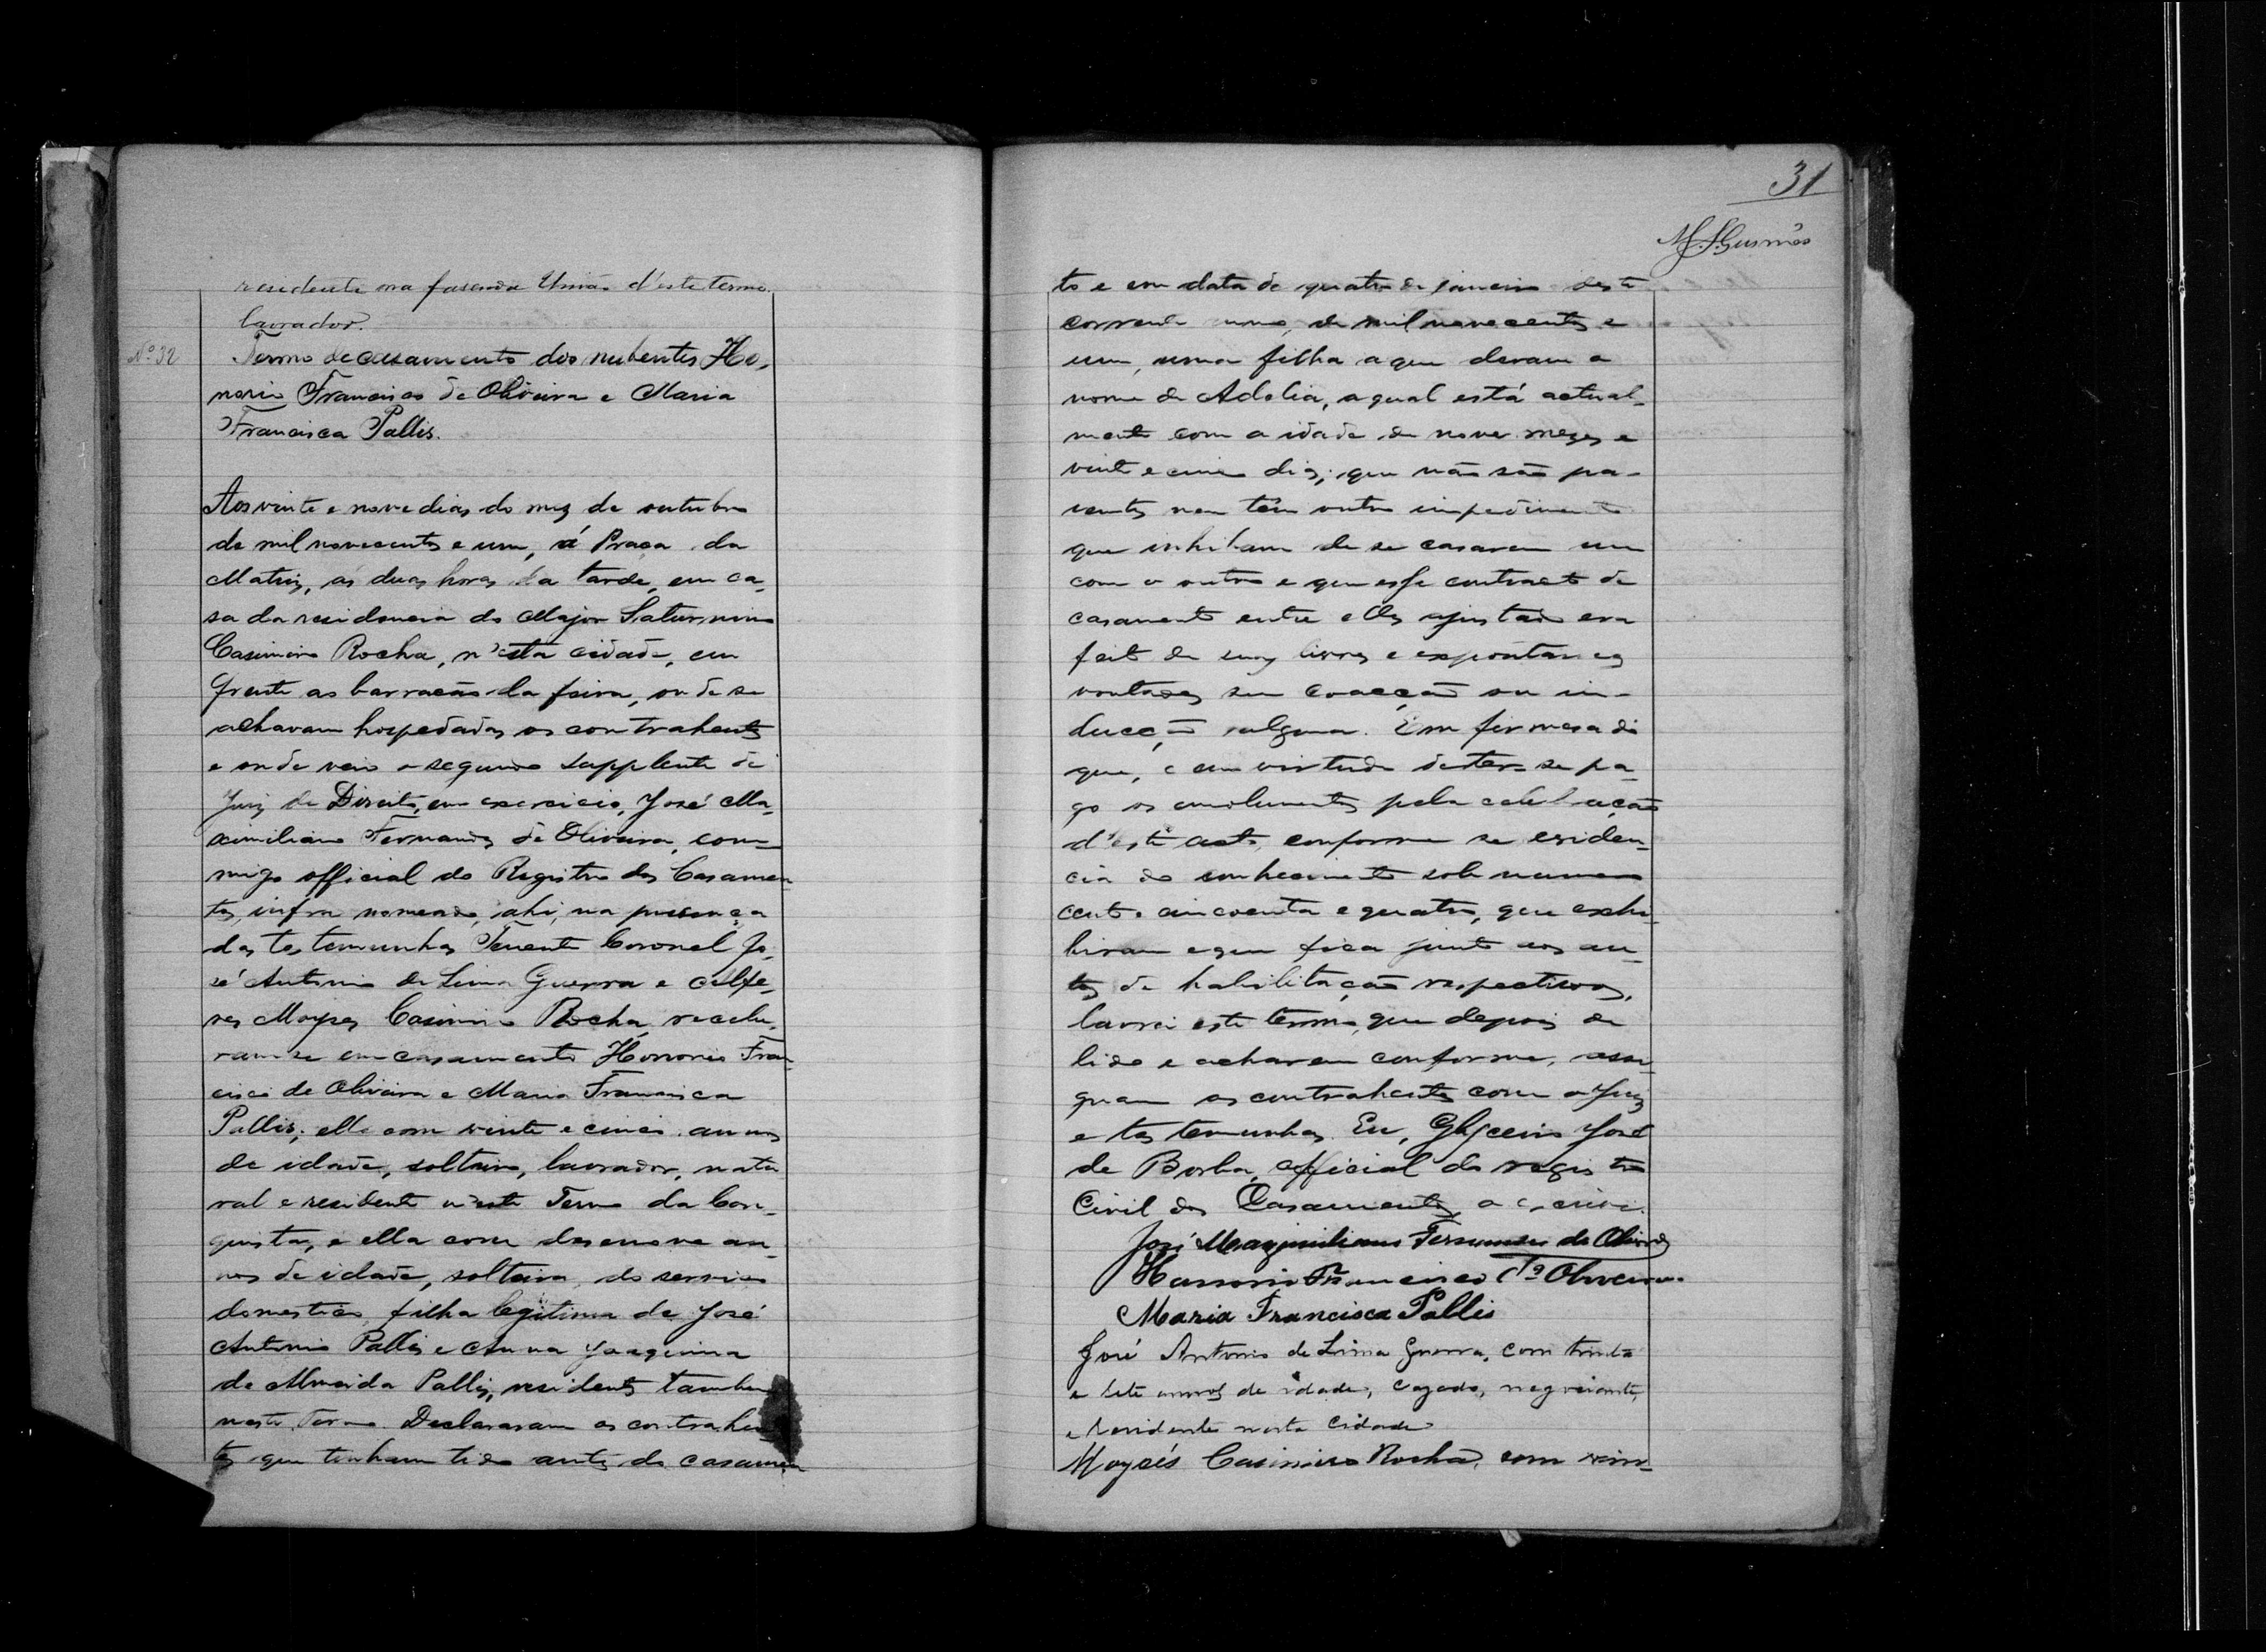 residente na fasenda União d'este termo.
lavrador.
Nº 32
Termo de casamento dos nubentes Ho-
norio Francisco de Oliveira e Maria
Francisca Pallis.
Aos vinte e nove dias do mez de outubro
de mil novecentos e um, á Praça da
Matriz, ás duas horas da tarde, em ca-
sa da residencia do Major Saturnino
Casimiro Rocha, n'esta cidade, em
frente ao barracão da feira, onde se
achavam hospedados os contrahentes
e onde veio o segundo supplente de
Juiz de Direito, em exercicio, José Ma-
ximiliano Fernandes de Oliveira, com-
migo official do Registro dos Casamen
tos, infra nomeado, ahi, na presença
das testemunhas Tenente Coronel Jo-
sé Antonio de Lima Guerra e Alfe-
res Moyses Casimiro Rocha, recebe-
ram-se em casamento Honorio Fran
cisco de Oliveira e Maria Francisca
Pallis; elle com vinte e cinco annos
de idade, solteiro, lavrador, natu
ral e residente n'este Termo da Con-
quista, e ella com desenove an-
nos de idade, solteira, do serviço
domestico, filha legitima de José
Antonio Pallis e Anna Joaquina
de Almeida Pallis, residentes tambem
neste Termo. Declararam os contrahen
tes que tinham tido antes do casamen
31
to e em data de quatro de janeiro deste
corrente anno, de mil novecentos e
um, uma filha a que deram o
nome de Adelia, a qual está actual-
mente com a idade de nove mezes e
vinte e cinco dias; que não são pa-
rentes nem têm outro impedimento
que inhibam de se casarem um
com o outro e que esse contracto de
casamento entre elles ajustado era
feito de suas livres e expontaneas
vontades sem coacção ou in-
ducção alguma. Em firmesa do
que, e em virtude de ter-se pa-
go os emolumentos pela celebração
d'este acto, conforme se eviden-
cia do conhecimento sob numero
cento cincoenta e quatro, que exhi-
biram e que fica junto aos au-
tos de habilitação respectivos,
lavrei este termo, que depois de
lido e acharem conforme, assi-
gnam os contrahentes com o Juiz
e testemunhas. Eu, Glycerio José
de Borba, official do registro
Civil dos Casamentos, o escrevi.
José Maximiliano Fernandes de Oliveira
Honorio Francisco de Oliveira.
Maria Francisca Pallis
José Antonio de Lima Guerra, com trinta
e sete annos de idade, cazado, negociante,
e residente nesta Cidade
Moysés Casimiro Rocha, com vin-